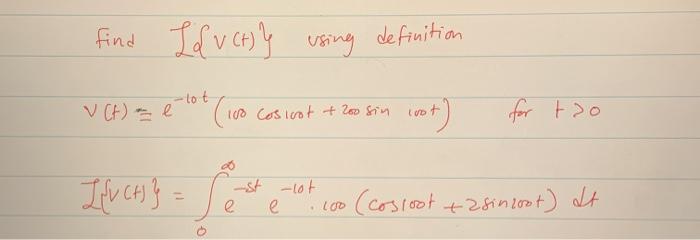 find ℒ{v(t)} using definition
v(t) = e^{-10t} (100 cos 100t + 200 sin 100t) for t>0
ℒ{v(t)} = ∫_0^∞ e^{-st} e^{-10t} . 100 (cos100t + 2sin100t) dt